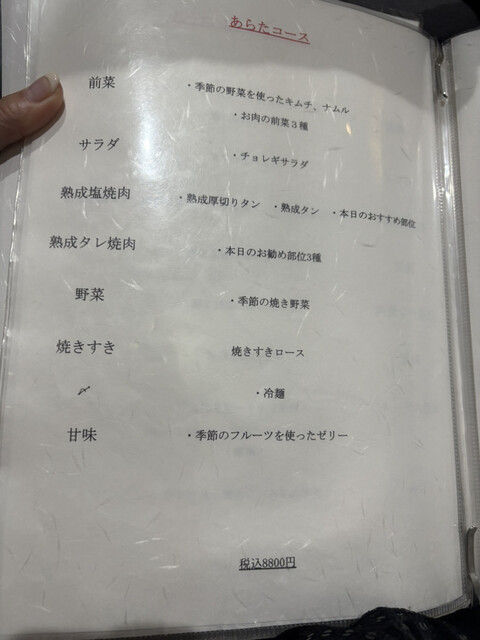 あらたコース
前菜 ・季節の野菜を使ったキムチ、ナムル
・お肉の前菜3種
サラダ ・チョレギサラダ
熟成塩焼肉 ・熟成厚切りタン ・熟成タン ・本日のおすすめ部位
熟成タレ焼肉 ・本日のお勧め部位3種
野菜 ・季節の焼き野菜
焼きすき 焼きすきロース
〆 ・冷麺
甘味 ・季節のフルーツを使ったゼリー
税込8800円